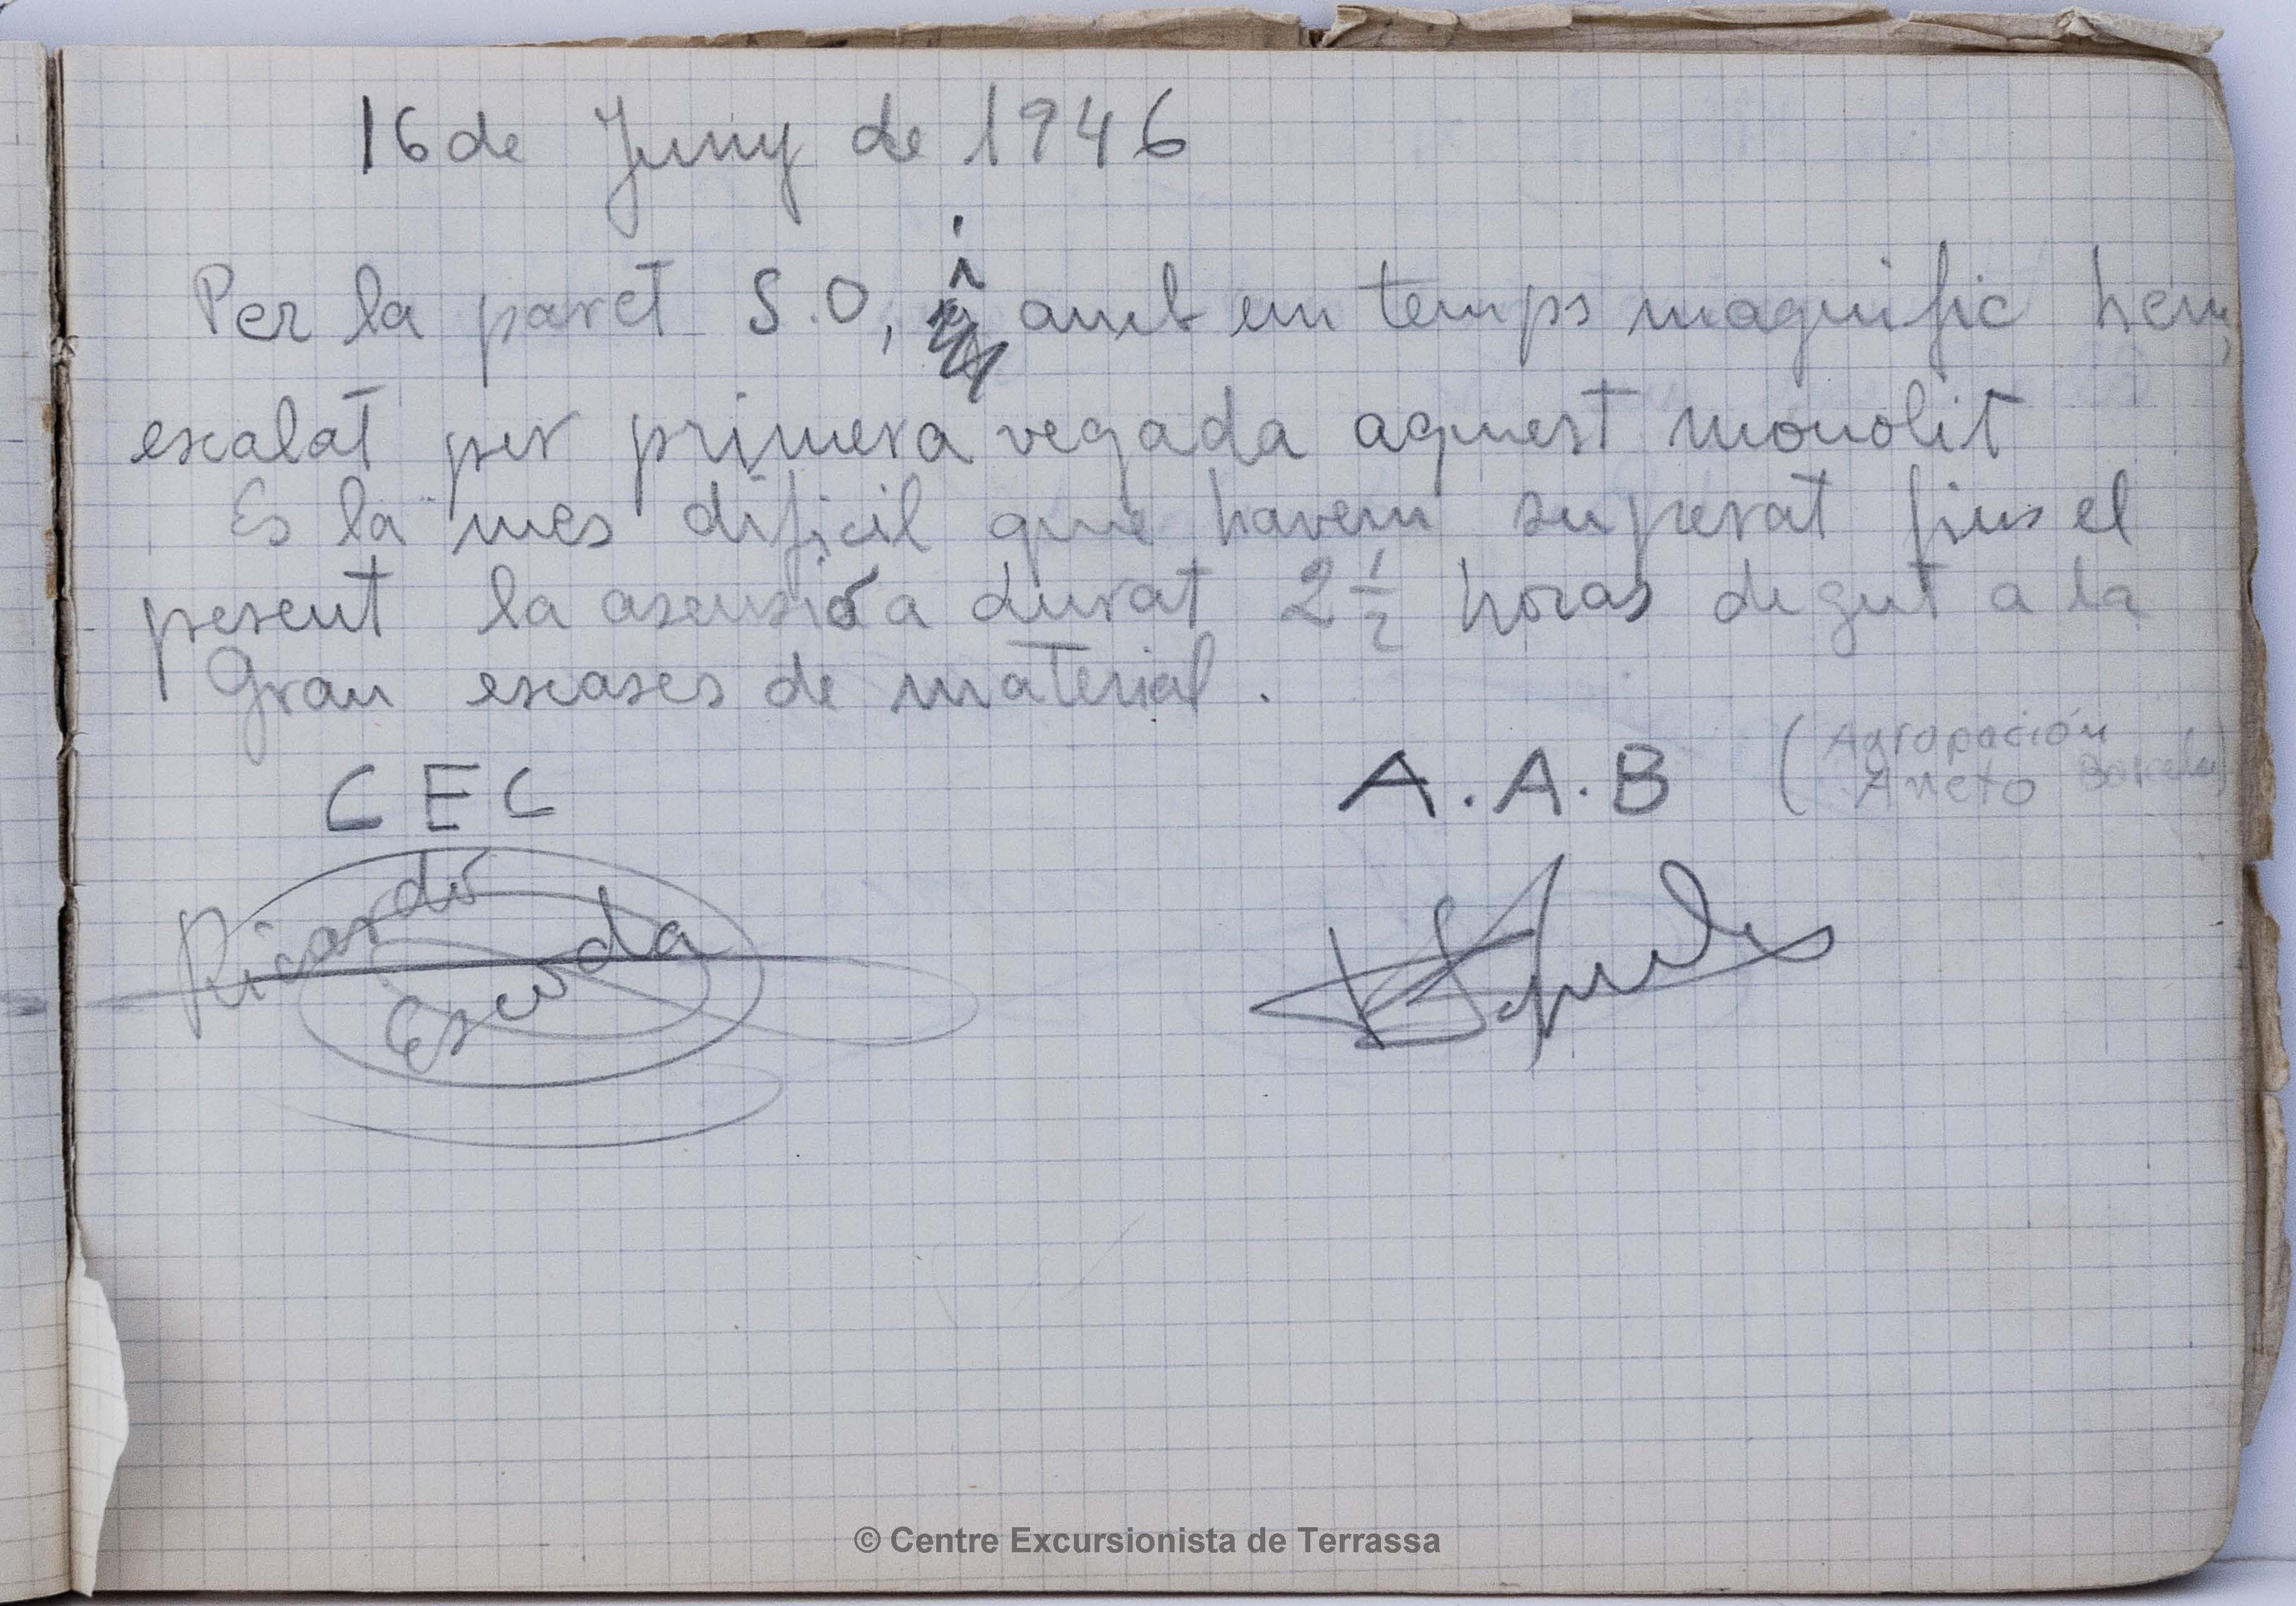 16 de Juny de 1946
Per la paret S.O, i amb un temps magnific hem
escalat per primera vegada aquest monolit
Es la mes dificil que havem superat fins el
pesent la asensió a durat 2 1/2 horas degut a la
Gran escases de material.
CEC
A.A.B (Agropación
Aneto Barcelona)
Ricardo
Escuda
© Centre Excursionista de Terrassa